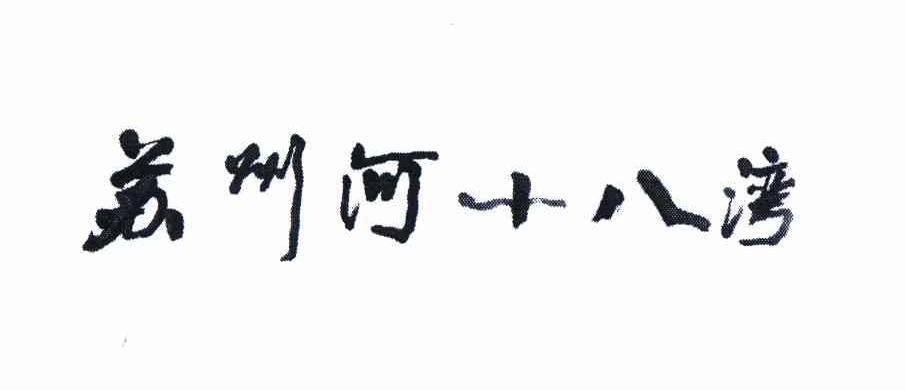 苏州河十八湾